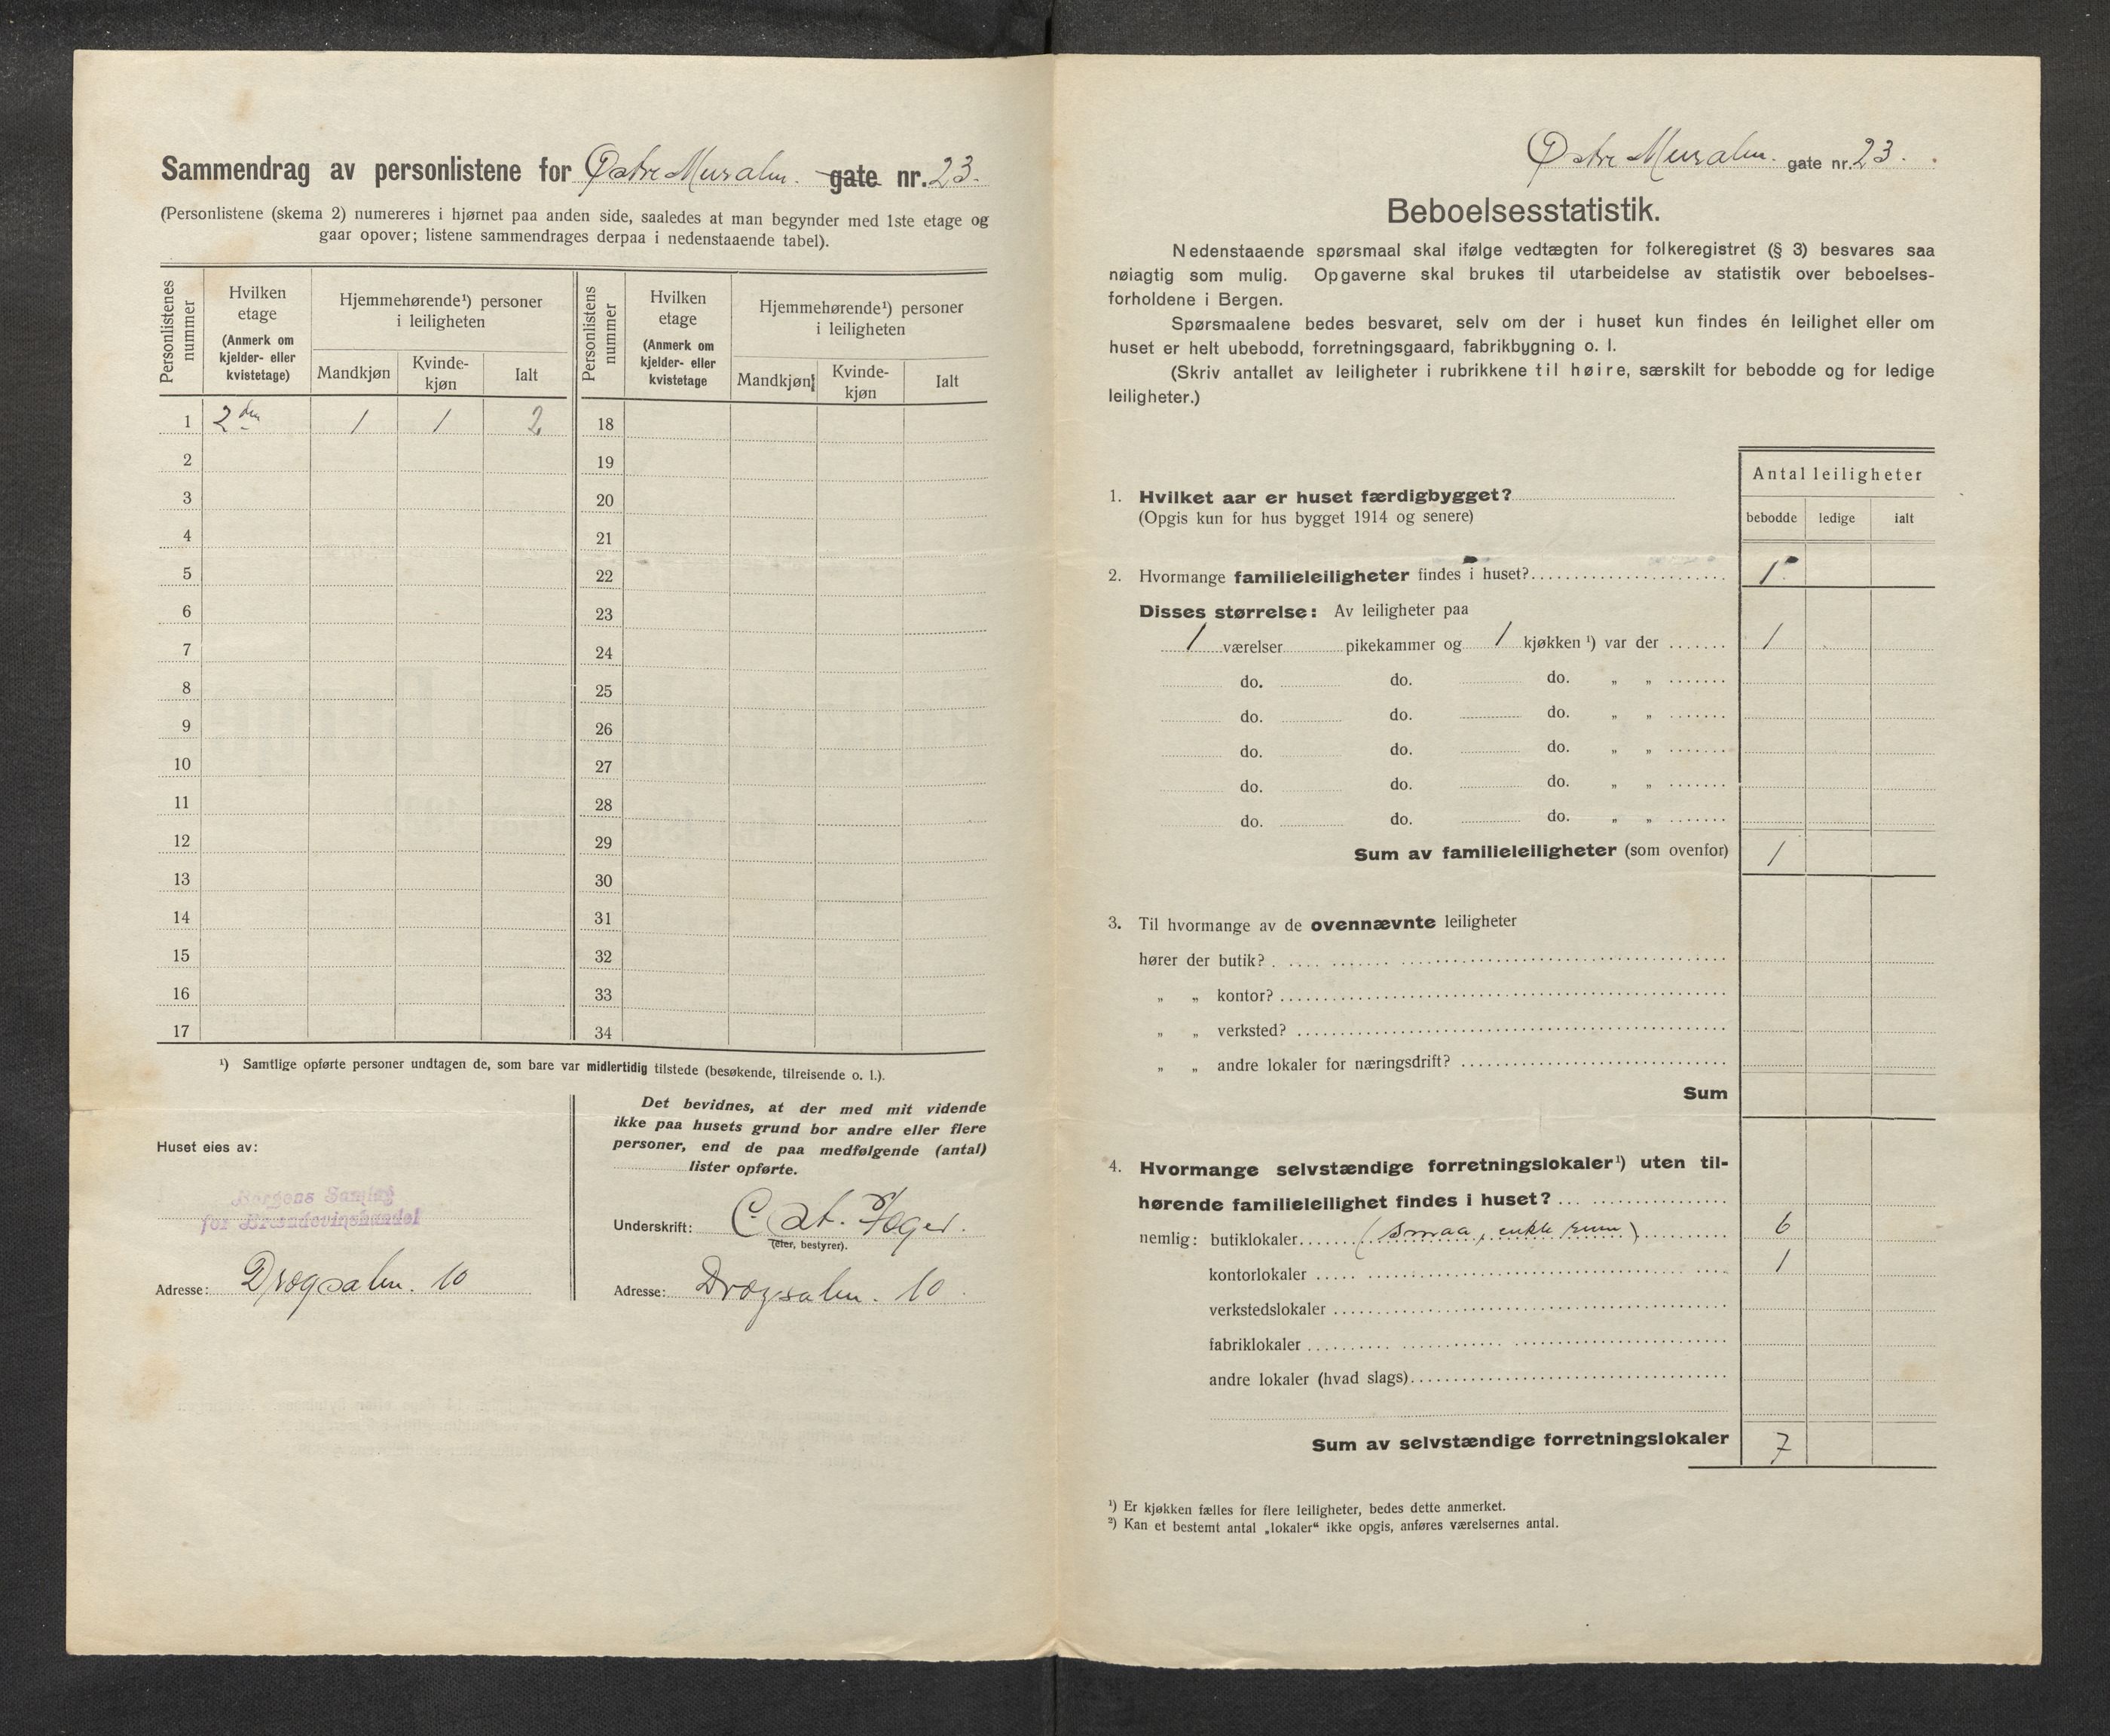 Sammendrag av personlistene for Østre Muralm. gate nr. 23.
(Personlistene (skema 2) numereres i hjørnet paa anden side, saaledes at man begynder med 1ste etage og
gaar opover; listene sammendrages derpaa i nedenstaaende tabel).
Personlistenes nummer
Hvilken etage (Anmerk om kjelder- eller kvistetage)
Hjemmehørende¹) personer i leiligheten
Mandkjøn Kvinde-kjøn Ialt
Personlistens nummer
Hvilken etage (Anmerk om kjelder- eller kvistetage
Hjemmehørende¹) personer i leiligheten
Mandkjøn Kvinde-kjøn Ialt
1 2den 1 1 2 18
2 19
3 20
4 21
5 22
6 23
7 24
8 25
9 26
10 27
11 28
12 29
13 30
14 31
15 32
16 33
17 34
¹) Samtlige opførte personer undtagen de, som bare var midlertidig tilstede (besøkende, tilreisende o. l.).
Huset eies av:
Bergens Samlag
for Brændevinshandel
Adresse: Drægsalm. 10
Det bevidnes, at der med mit vidende
ikke paa husets grund bor andre eller flere
personer, end de paa medfølgende (antal)
lister opførte.
Underskrift:
(eier, bestyrer).
Adresse: Drægsalm. 10
Østre Muralm. gate nr. 23.
Beboelsesstatistik.
Nedenstaaende spørsmaal skal ifølge vedtægten for folkeregistret (§ 3) besvares saa
nøiagtig som mulig. Opgaverne skal brukes til utarbeidelse av statistik over beboelses-
forholdene i Bergen.
Spørsmaalene bedes besvaret, selv om der i huset kun findes én leilighet eller om
huset er helt ubebodd, forretningsgaard, fabrikbygning o. l.
(Skriv antallet av leiligheter i rubrikkene til høire, særskilt for bebodde og for ledige
leiligheter.)
Antal leiligheter
bebodde ledige ialt
1. Hvilket aar er huset færdigbygget?
(Opgis kun for hus bygget 1914 og senere)
2. Hvormange familieleiligheter findes i huset? 1
Disses størrelse: Av leiligheter paa
1 værelser pikekammer og 1 kjøkken ¹) var der 1
do. do. do. „ „
do. do. do. „ „
do. do. do. „ „
do. do. do. „ „
do. do. do. „ „
Sum av familieleiligheter (som ovenfor) 1
3. Til hvormange av de ovennævnte leiligheter
hører der butik?
„ „ kontor?
„ „ verksted?
„ „ andre lokaler for næringsdrift?
Sum
4. Hvormange selvstændige forretningslokaler¹) uten til-
hørende familieleilighet findes i huset?
nemlig: butiklokaler (smaa, enkle rum) 6
kontorlokaler 1
verkstedslokaler
fabriklokaler
andre lokaler (hvad slags)
Sum av selvstændige forretningslokaler 7
¹) Er kjøkken fælles for flere leiligheter, bedes dette anmerket.
²) Kan et bestemt antal „lokaler“ ikke opgis, anføres værelsernes antal.